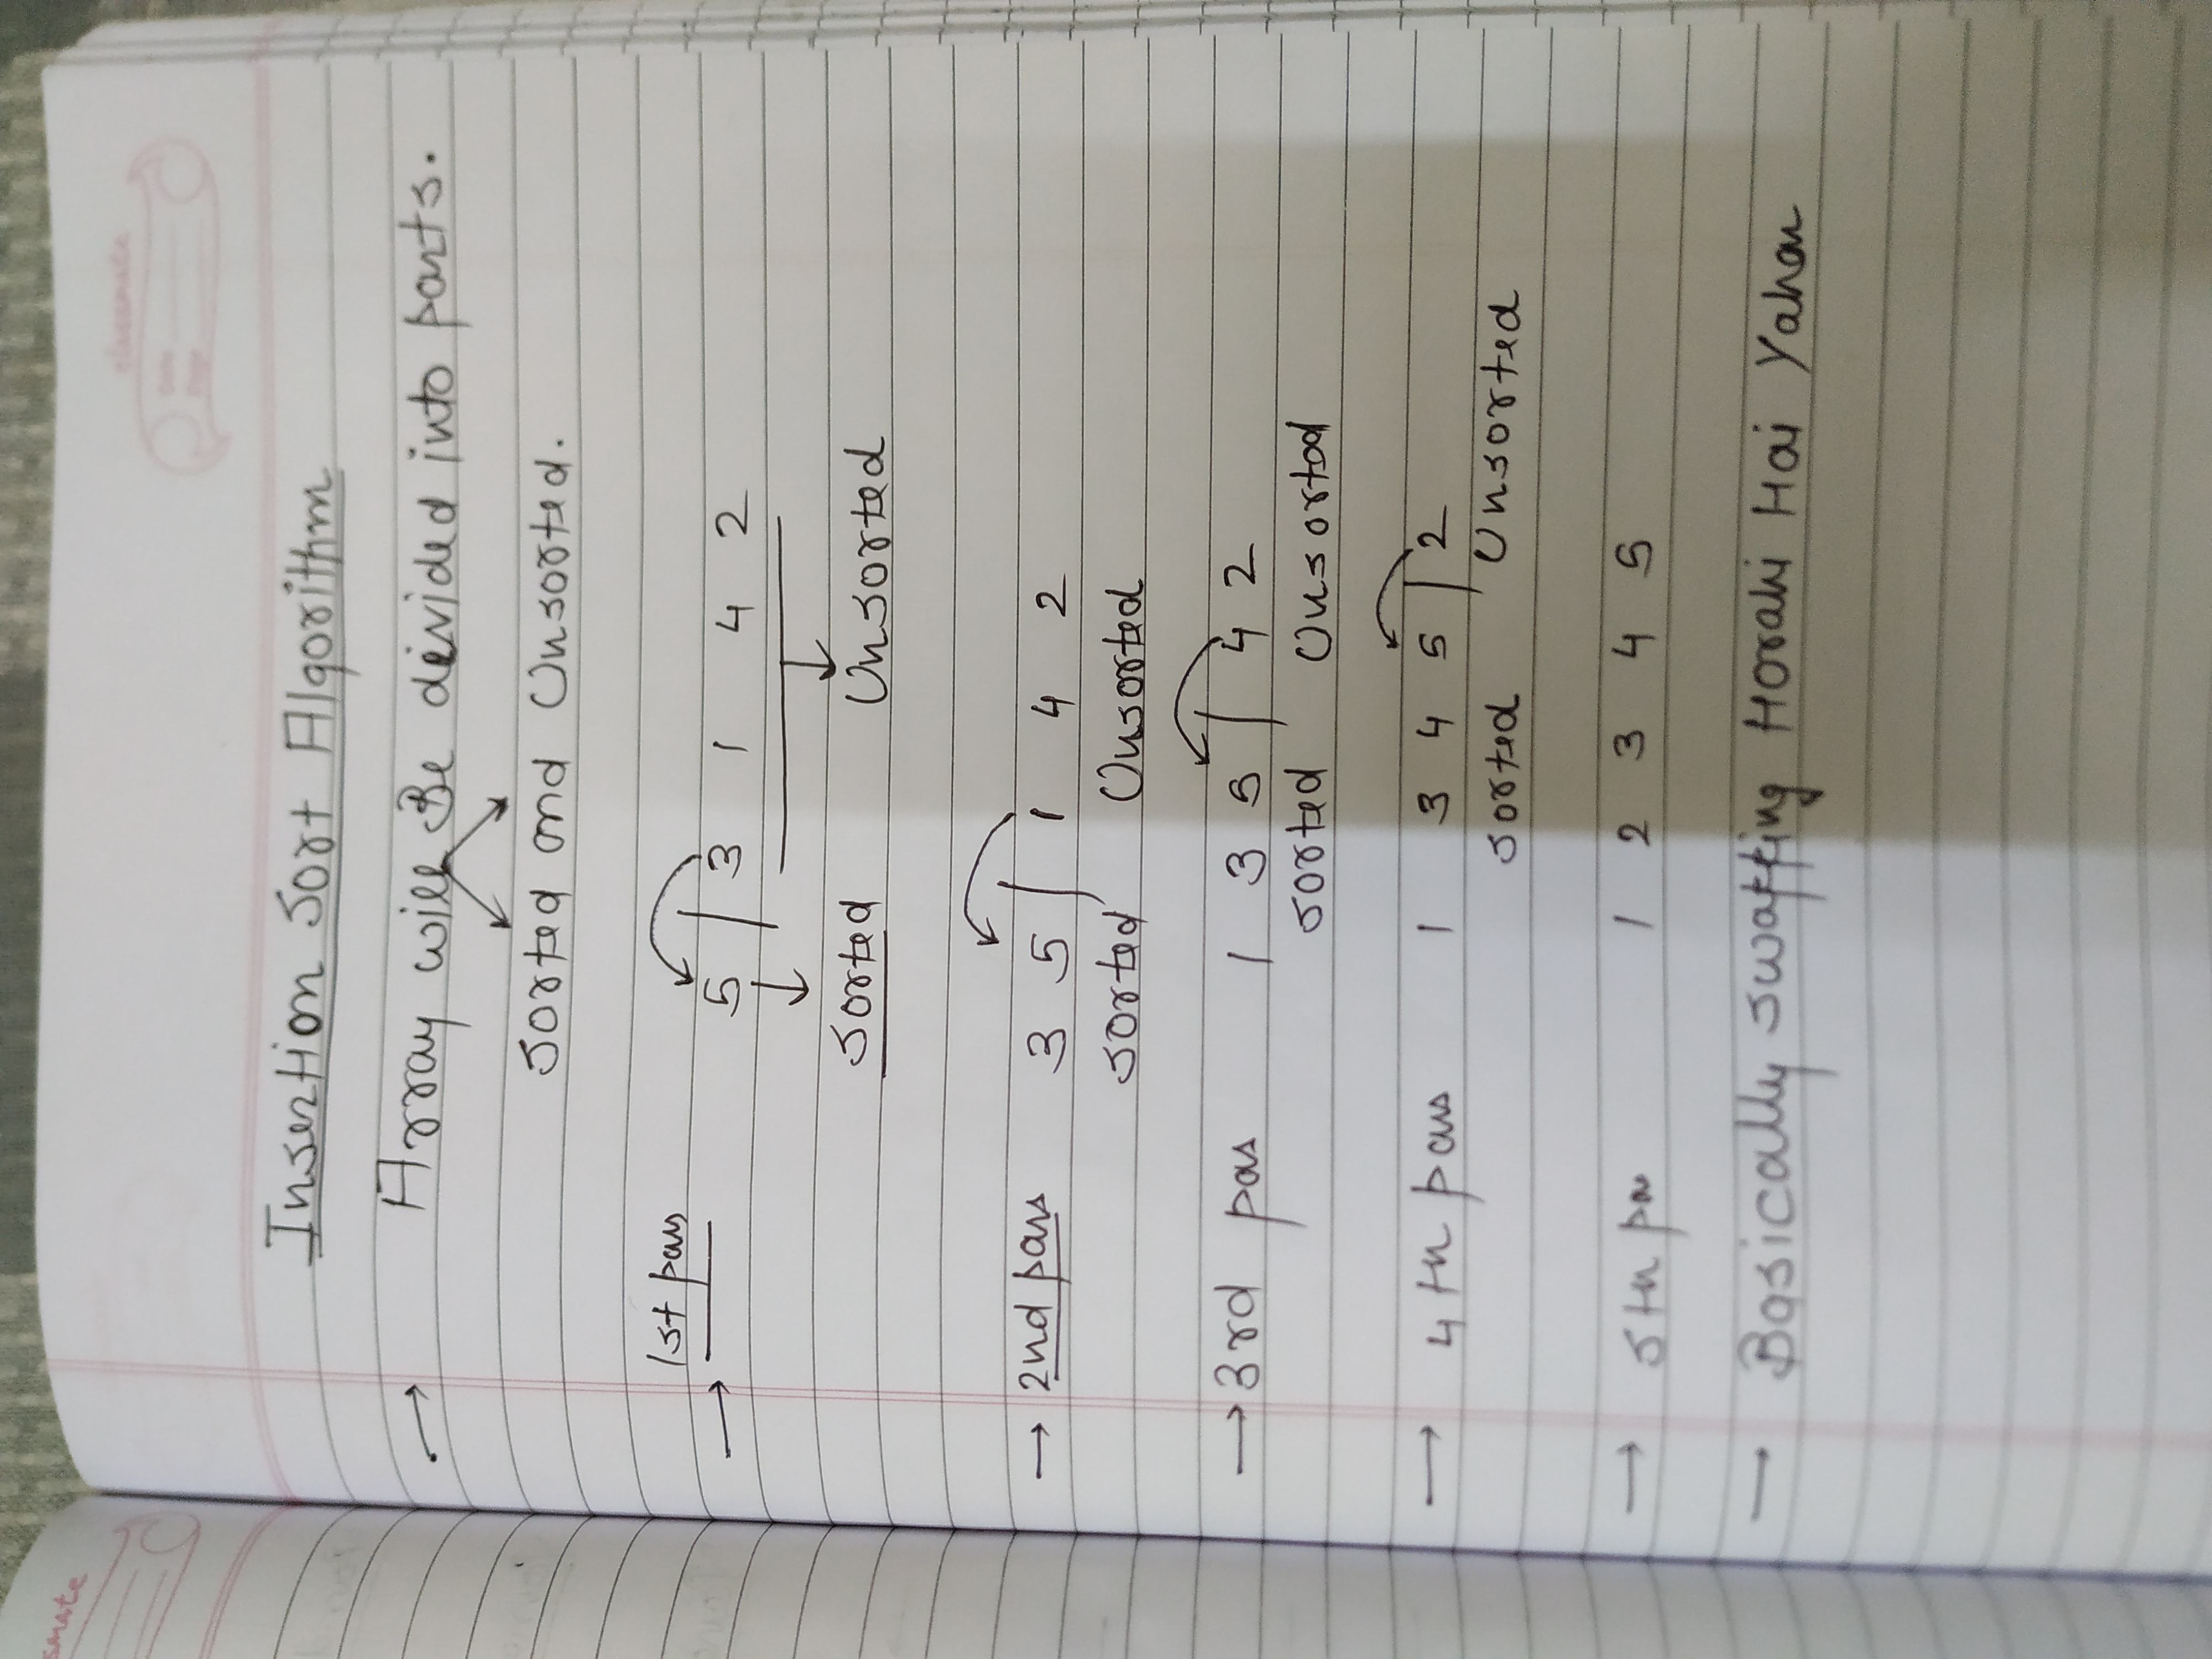 smate
classmate
Date
Page
Insertion Sort Algorithm
→ Array will Be divided into parts.
Sorted and Unsorted.
1st pass
→ 5 | 3 1 4 2
Sorted Unsorted
→ 2nd pass 3 5 | 1 4 2
Sorted Unsorted
→ 3rd pass 1 3 5 | 4 2
Sorted Unsorted
→ 4th pass 1 3 4 5 | 2
Sorted Unsorted
→ 5th pas 1 2 3 4 5
→ Basically swapping Horahi Hai Yahan